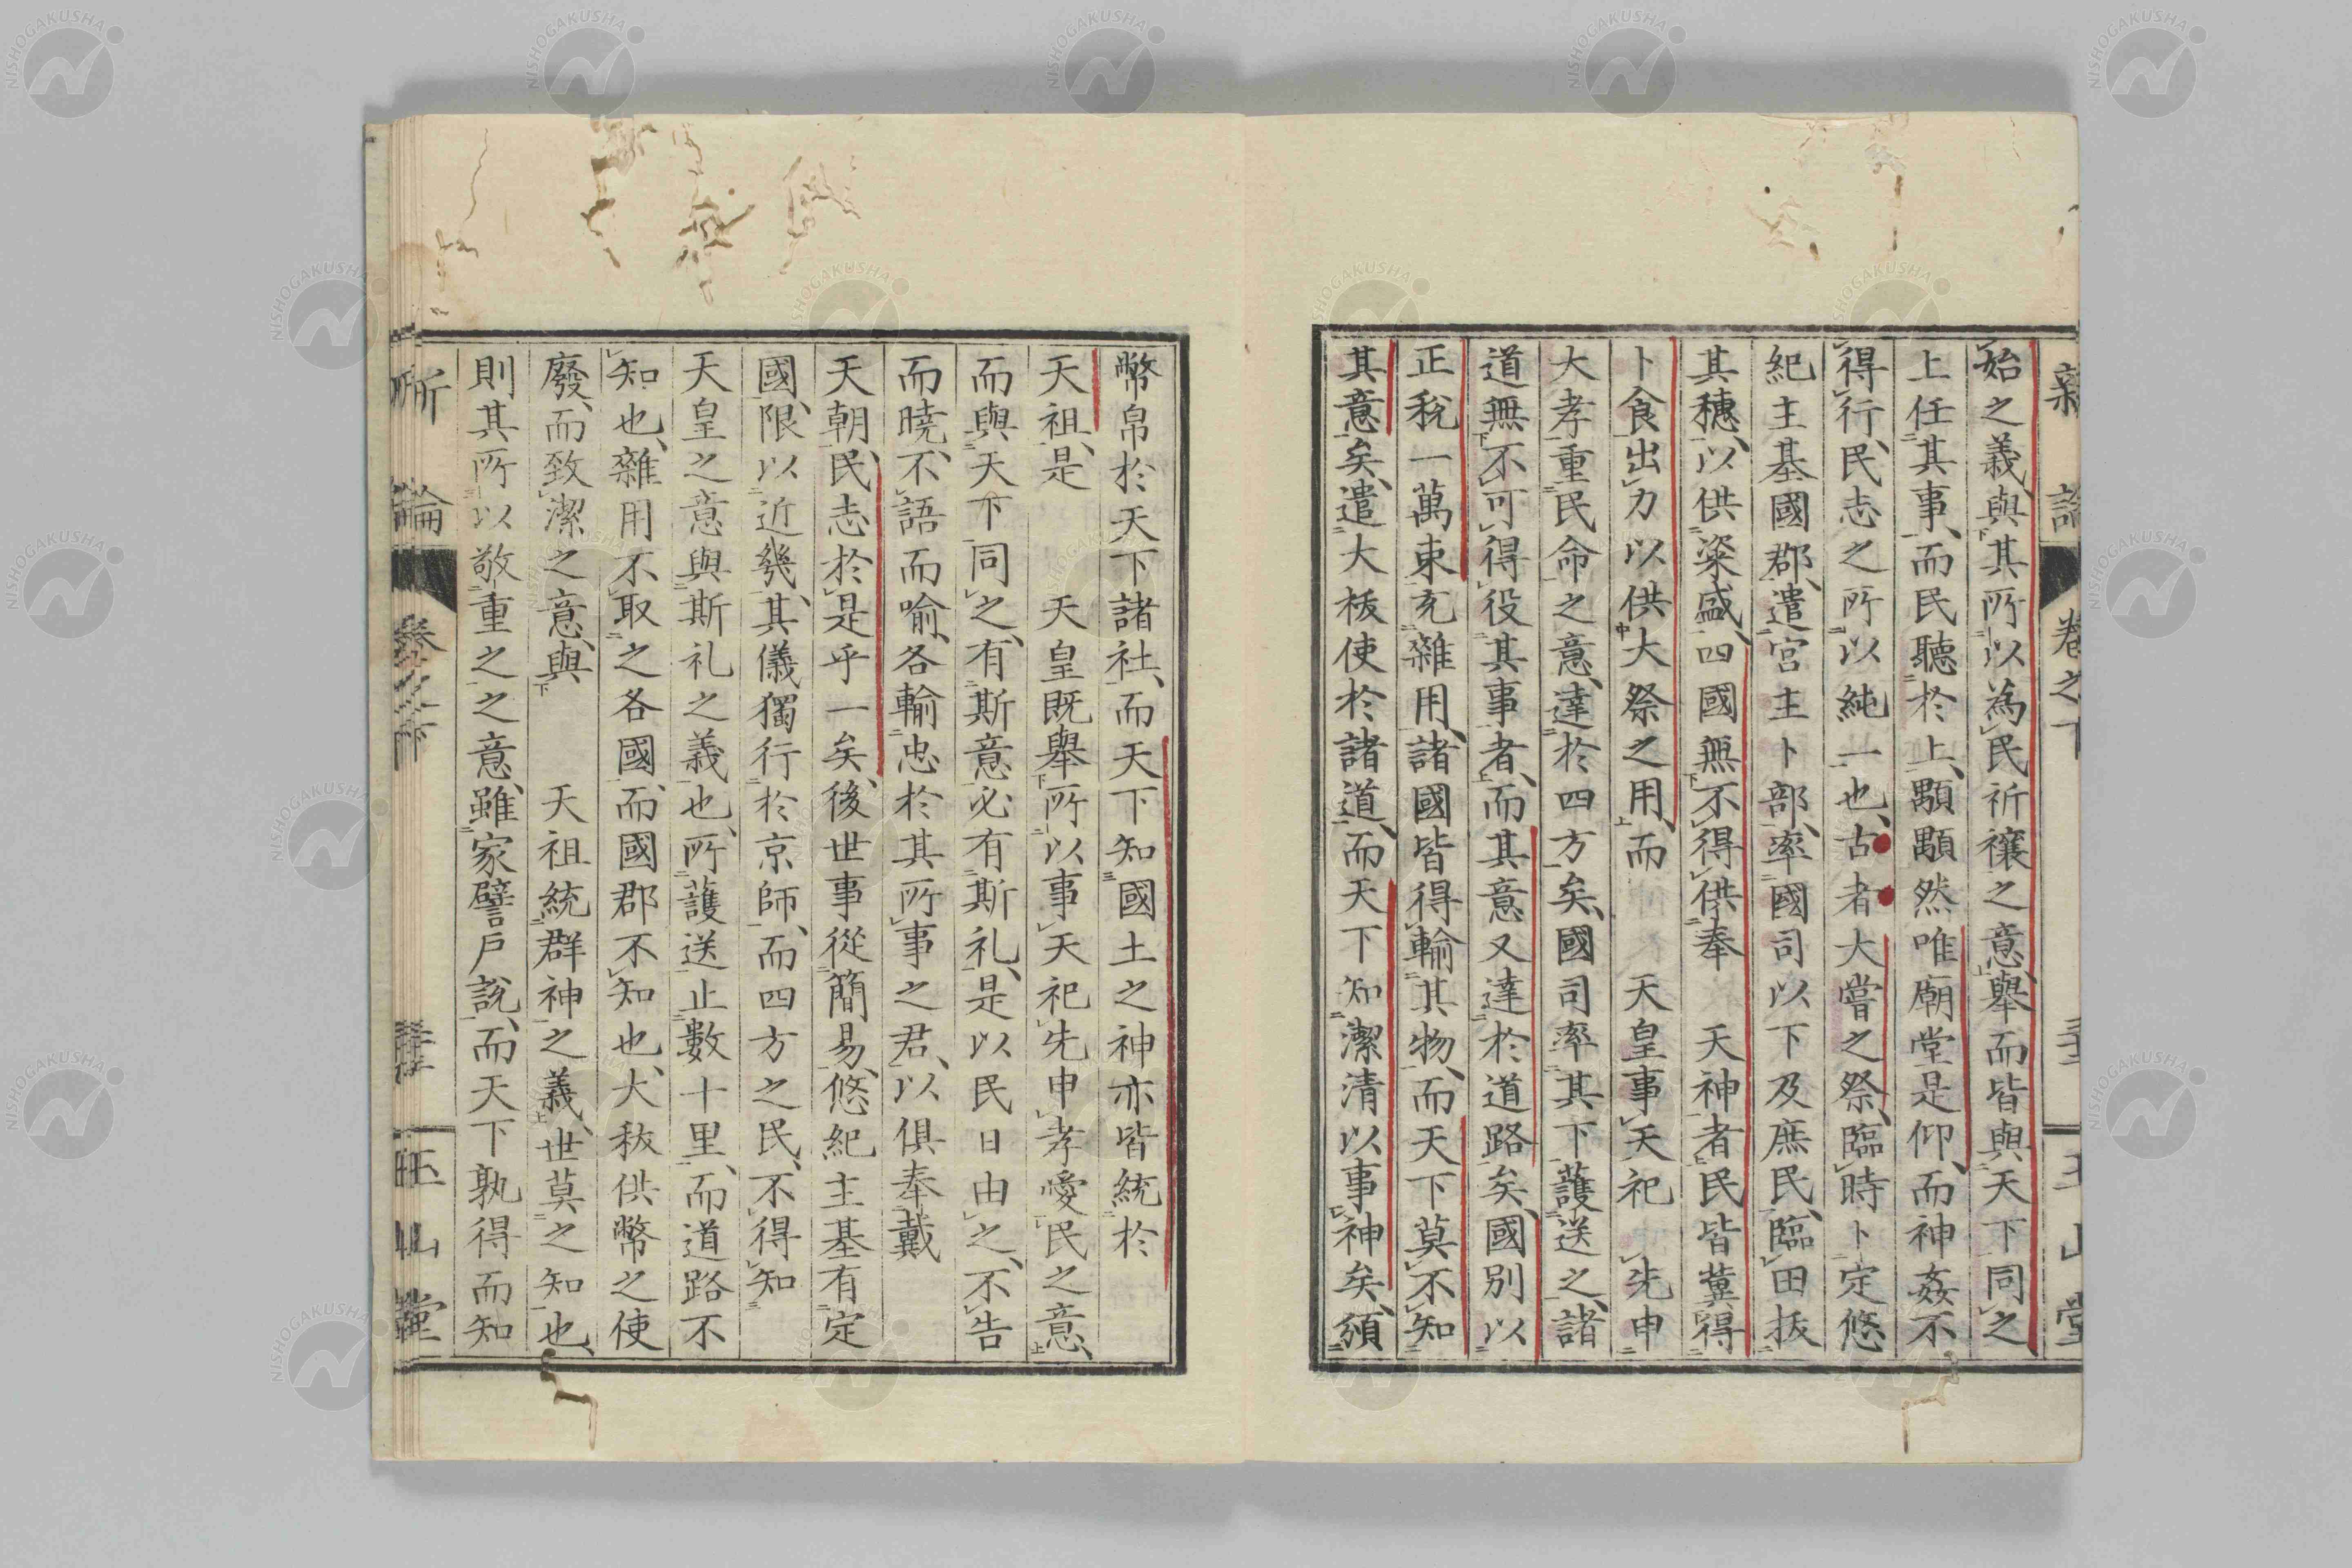 新論 卷之下 玉山堂
始之義、與其所以為民祈禳之意、舉而皆與天下同之
上任其事、而民聽於上、顒顒然唯廟堂是仰、而神姦不
得行、民志之所以純一也、古者大嘗之祭、臨時卜定悠
紀主基國郡、遣宮主卜部、率國司以下及庶民、臨田抜
其穗、以供粢盛、四國無不得供奉 天神者、民皆冀得
卜食出力以供大祭之用、而 天皇事天祀 先申
大孝重民命之意、達於四方矣、國司率其下護送之、諸
道無不可得役其事者、而其意又達於道路矣、國別以
正稅一萬束充雜用、諸國皆得輸其物、而天下莫不知
其意矣、遣大秡使於諸道、而天下知潔清以事神矣、頒
幣帛於天下諸社、而天下知國土之神亦皆統於
天祖、是 天皇既舉所以事天祀先申孝愛民之意、
而與天下同之、有斯意必有斯礼、是以民日由之、不告
而曉、不語而喻、各輸忠於其所事之君、以俱奉戴
天朝、民志於是乎一矣、後世事從簡易、悠紀主基有定
國、限以近畿、其儀獨行於京師、而四方之民、不得知
天皇之意與斯礼之義也、所護送止數十里、而道路不
知也、雜用不取之各國、而國郡不知也、大秡供幣之使
廢、而致潔之意、與 天祖統群神之義、世莫之知也、
則其所以敬重之之意、雖家譬戶說、而天下孰得而知
論 卷之下 玉山堂
NISHOGAKUSHA